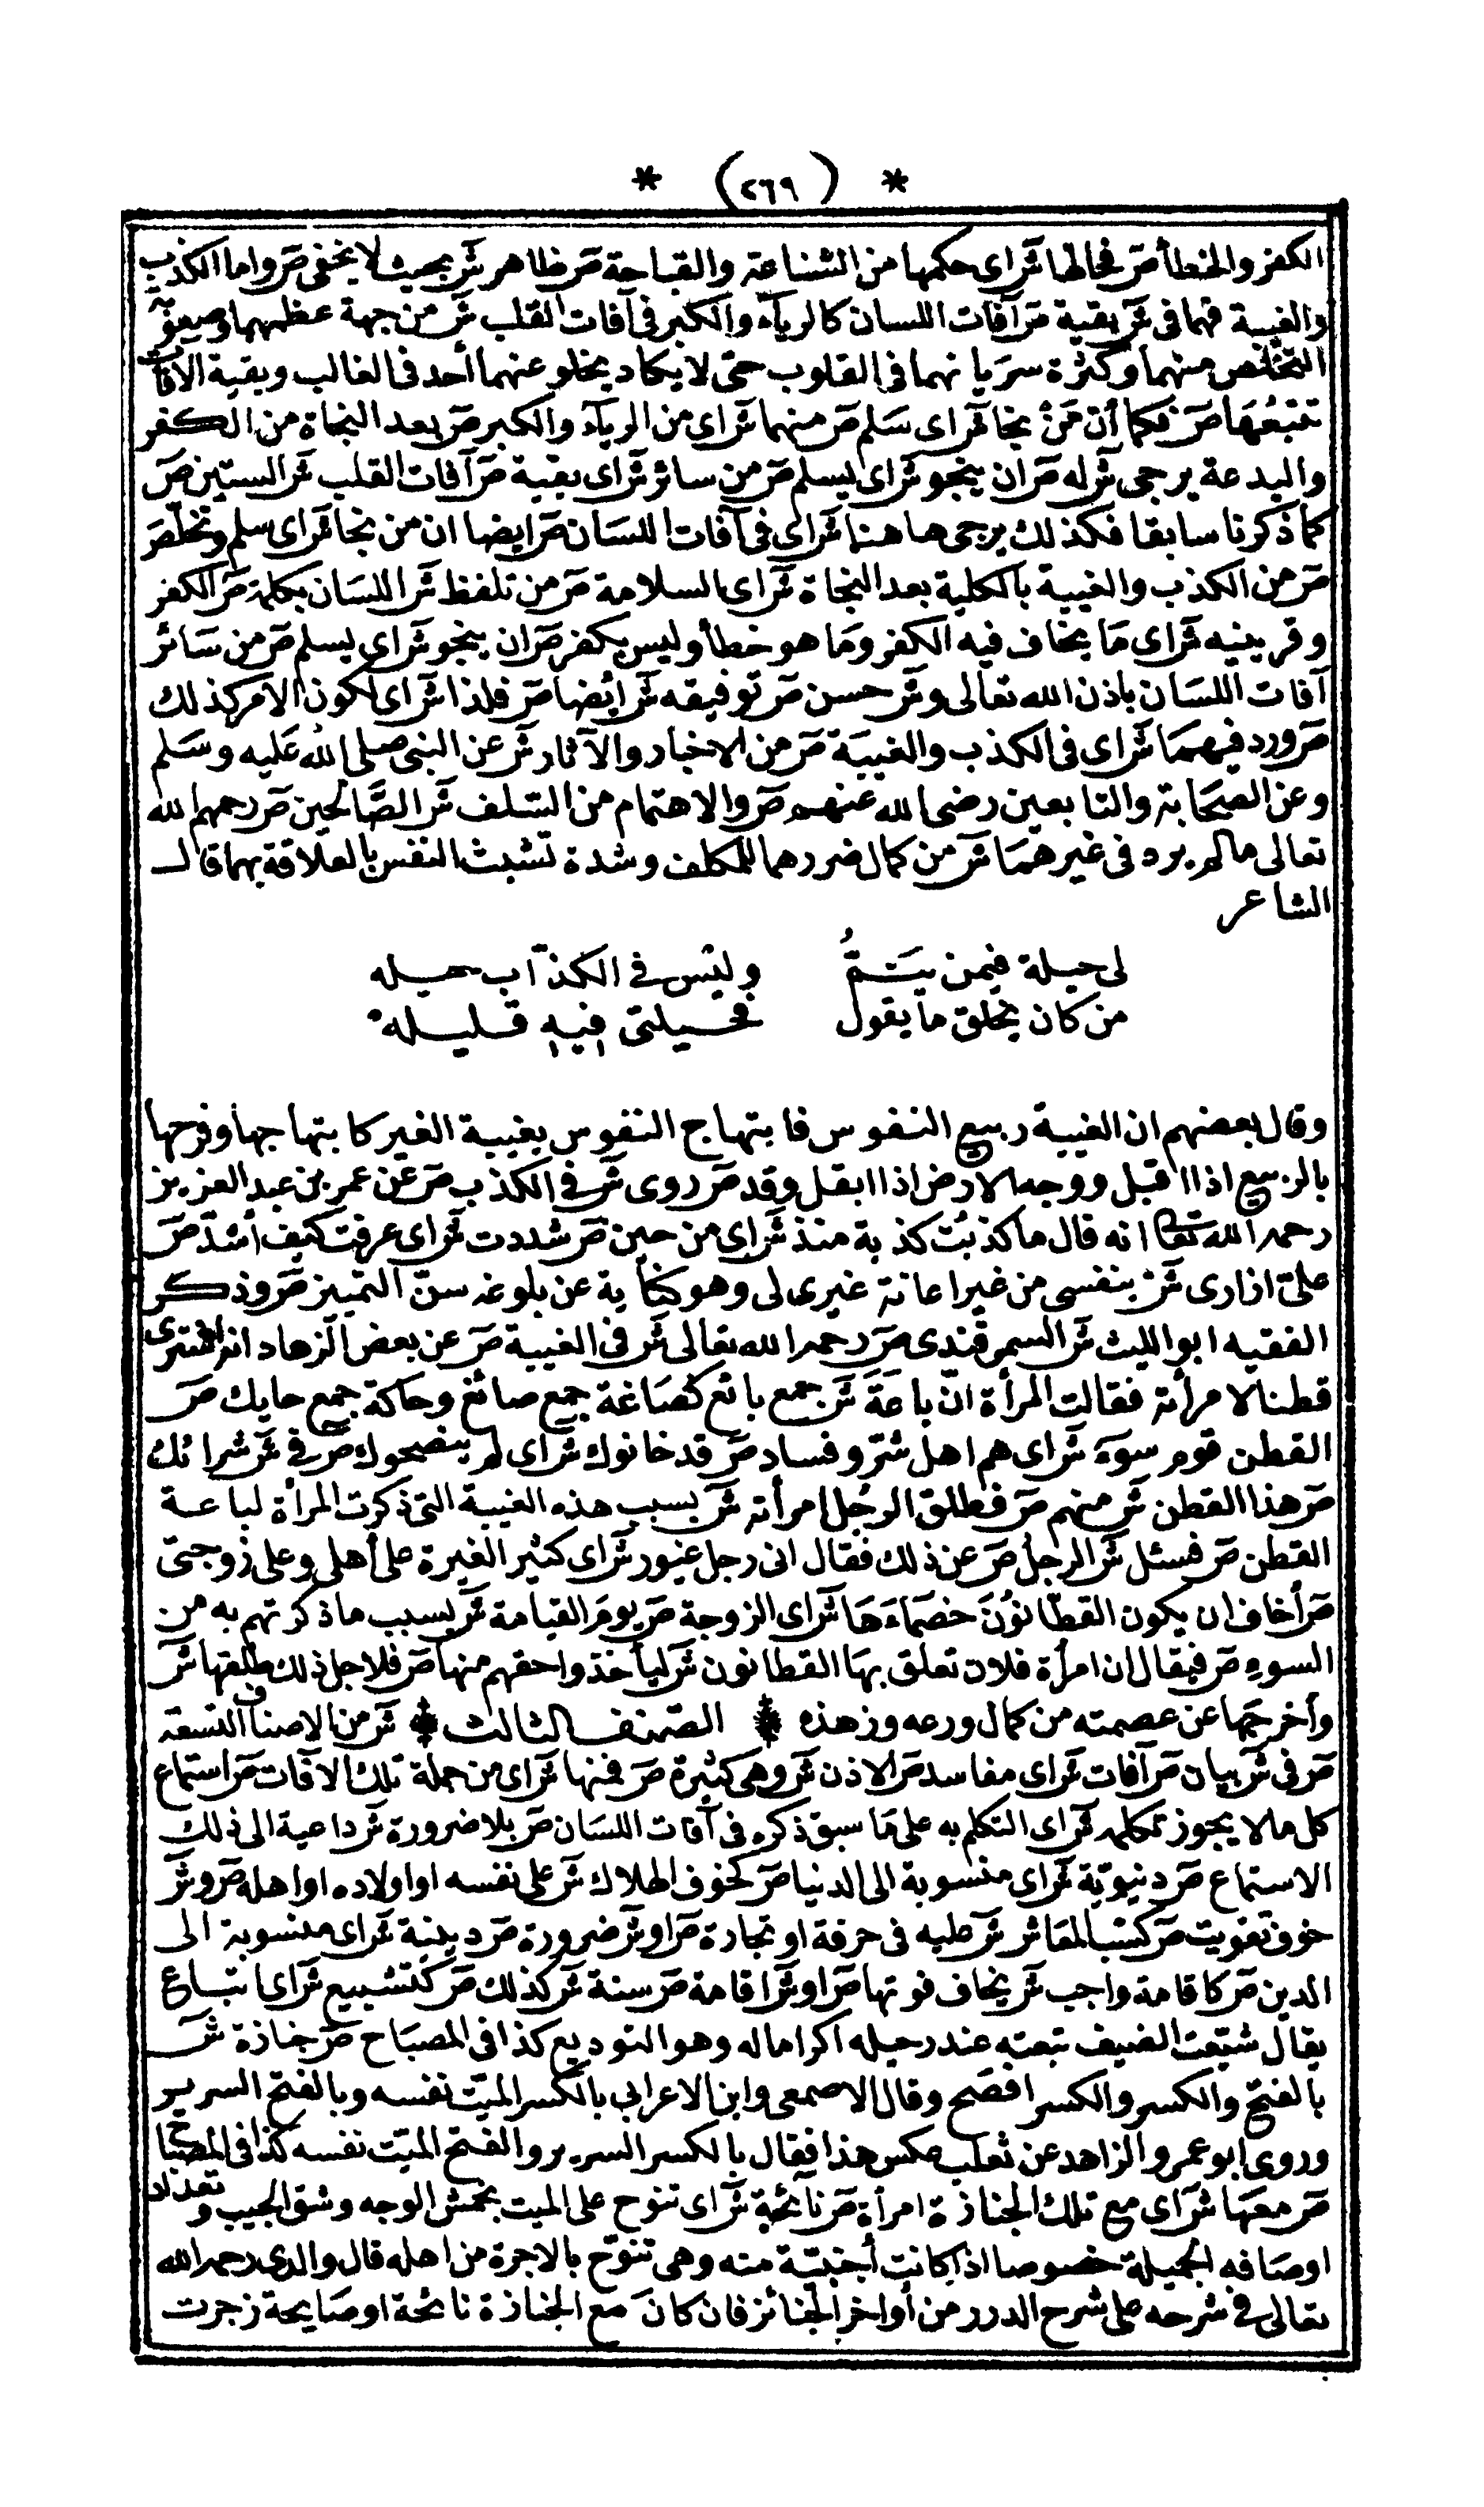 * (٢٦٩) *
الكفر والخطأ صر فحالها شر اى حكمها من الشناعة والقباحة صر ظاهر شر بحيث لا يخفى صر واما الكذب
والغيبة فهما فى شر بقية صر آفات اللسان كالرياء والكبر فى آفات القلب شر من جهة عظمهما وصعوبة
التخلص منهما وكثرة سريانهما فى القلوب حتى لا يكاد يخلو عنهما أحد فى الغالب وبقية الآفات
تتبعها صر فكما أن من نجا شر اى سلم صر منهما شر اى من الرياء والكبر صر بعد النجاة من الكفر
والبدعة يرجى شر له صر ان ينجو شر اى يسلم صر من سائر شر اى بقية صر آفات القلب شر الستين صر
كما ذكرنا سابقا فكذلك يرجى هاهنا شر اى فى آفات اللسان صر ايضا ان من نجا شر اى سلم وتخلص
صر من الكذب والغيبة بالكلية بعد النجاة شر اى السلامة صر من تلفظ شر اللسان بكلمة صر الكفر
وقرينيه شر اى ما يخاف فيه الكفر وما هو خطأ وليس بكفر صر ان ينجو شر اى يسلم صر من سائر
آفات اللسان باذن الله تعالى وشر حسن صر توفيقه شر ايضا صر فلذا شر اى لكون الامر كذلك
صر ورد فيهما شر اى فى الكذب والغيبة صر من الاخبار والآثار شر عن النبى صلى الله عليه وسلم
وعن الصحابة والتابعين رضى الله عنهم صر والاهتمام من السلف شر الصالحين صر رحمهم الله
تعالى ما لم يرد فى غيرهما شر من كمال ضررهما للمكلف وشدة تشبث النفس بالعلاقة بهما قال
الشاعر
لى حيلة فيمن ينمُّ    وليس فى الكذاب حيله
من كان يخلق ما يقول    فحيلتى فيه قليله
وقال بعضهم ان الغيبة ربيع النفوس فابتهاج النفوس بغيبة الغير كابتهاجها وفرحها
بالربيع اذا اقبل ووجه الارض اذا ابقل وقد صر روى شر فى الكذب صر عن عمر بن عبد العزيز
رحمه الله تعا انه قال ما كذبت كذبة منذ شر اى من حين صر شددت شر اى عرفت كيف اشد صر
على ازارى شر بنفسى من غير اعانة غيرى لى وهو كناية عن بلوغه سن التمييز صر وذكر
الفقيه ابو الليث شر السمرقندى صر رحمه الله تعالى شر فى الغيبة صر عن بعض الزهاد انه اشترى
قطنا لامرأته فقالت المرأة ان باعة شر جمع بائع كصاغة جمع صائغ وحاكة جمع حايك صر
القطن قوم سوء شر اى هم اهل شر وفساد صر قد خانوك شر اى لم ينصحوك صر فى شر شرائك
صر هذا القطن شر منهم صر فطلق الرجل امرأته شر بسبب هذه الغيبة التى ذكرت المرأة لباعة
القطن صر فسئل شر الرجل صر عن ذلك فقال انى رجل غيور شر اى كثير الغيرة على أهلى وعلى زوجتى
صر أخاف ان يكون القطانون خصماءها شر اى الزوجة صر يوم القيامة شر بسبب ما ذكرتهم به من
السوء صر فيقال ان امرأة فلان تعلق بها القطانون شر ليأخذوا حقهم منها صر فلاجل ذلك طلقتها شر
وأخرجها عن عصمته من كمال ورعه وزهده * الصنف الثالث * شر من الاصناف التسعة
صر فى شر بيان صر آفات شر اى مفاسد صر الاذن شر وهى كثيرة صر فمنها شر اى من جملة تلك الآفات صر استماع
كل ما لا يجوز تكلمه شر اى التكلم به على ما سبق ذكره فى آفات اللسان صر بلا ضرورة شر داعية الى ذلك
الاستماع صر دنيوية شر اى منسوبة الى الدنيا صر كخوف الهلاك شر على نفسه او اولاده او اهله صر وشر
خوف تفويت صر كسب المعاش شر طلبه فى حرفة او تجارة صر او شر ضرورة صر دينية شر اى منسوبة الى
الدين صر كاقامة واجب شر يخاف فوتها صر او شر اقامة صر سنة شر كذلك صر كتشييع شر اى اتباع
يقال شيعت الضيف تبعته عند رحيله اكراما له وهو التوديع كذا فى المصباح صر جنازة شر
بالفتح والكسر والكسر افصح وقال الاصمعى وابن الاعرابى بالكسر الميت نفسه وبالفتح السرير
وروى ابو عمرو الزاهد عن ثعلب عكس هذا فقال بالكسر السرير والفتح الميت نفسه كذا فى المصباح
صر معها شر اى مع تلك الجنازة امرأة صر نائحة شر اى تنوح على الميت بخمش الوجه وشق الجيب وتعداد
اوصافه الجميلة خصوصا اذا كانت أجنبية منه وهى تنوح بالاجرة من اهله قال والدى رحمه الله
تعالى فى شرحه على شرح الدرر من أواخر الجنائز فان كان مع الجنازة نائحة او صايحة زجرت